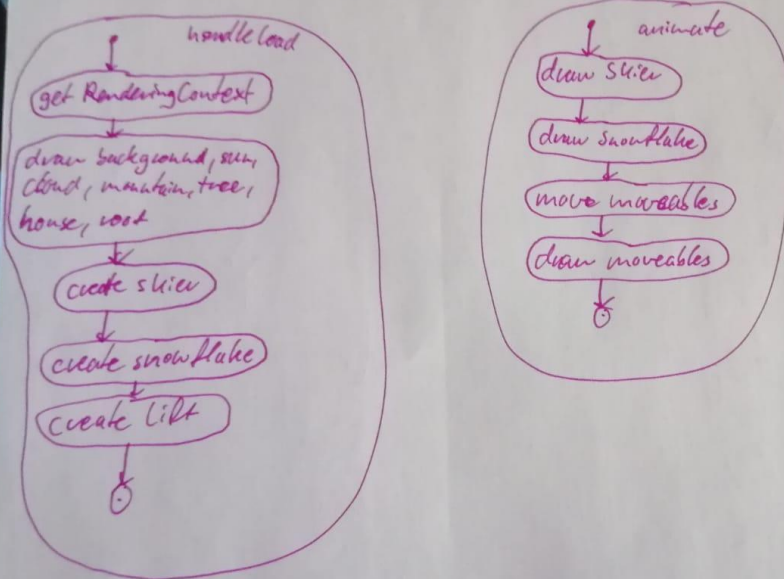 handleload
get RenderingContext
draw background, sun,
cloud, mountain, tree,
house, root
create skier
create snowflake
create lift
animate
draw skier
draw snowflake
move moveables
draw moveables